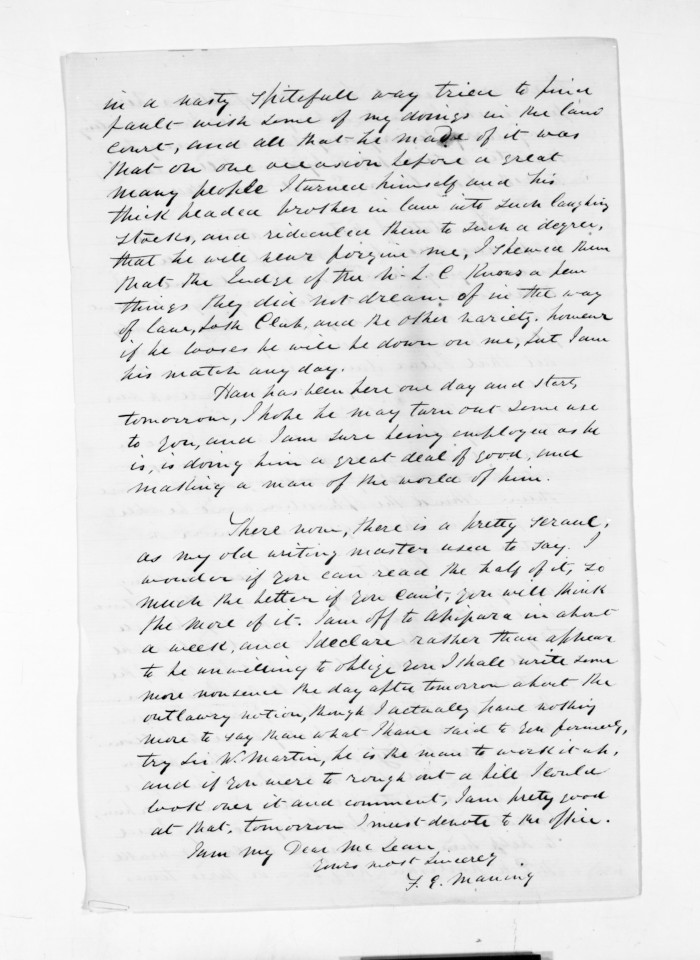 in a nasty spitefull way tried to find
fault with some of my doings in the land
Court, and all that he made of it was
that on one occasion before a great
many people I turned himself and his
thick headed brother in law into such laughing
stocks, and ridiculed them to such a degree,
that he will never forgive me, I shewed them
that the Judge of the N. L. C knows a few
things they did not dream of in the way
of law, and the other variety. however
if he looses he will be down on me, but I am
his match any day.
Han has been here one day and starts
tomorrow, I hope he may turn out some use
to you, and I am sure being employed as he
is, is doing him a great deal of good, and
making a man of the world of him.
There now, there is a pretty scrawl,
as my old writing master used to say. I
wonder if you can read the half of it, so
much the better if you cant, you will think
the more of it. I am off to Ahipara in about
a week, and I declare rather than appear
to be unwilling to oblige you I shall write some
more nonsence the day after tomorrow about the
outlawry notion, though I actually have nothing
more to say than what I have said to you formerly,
try Sir W. Martin, he is the man to work it up,
and if you were to rough out a bill I could
look over it and comment, I am pretty good
at that, tomorrow I must devote to the office.
I am my Dear McLean
Yours most Sincerely
F. E. Maning